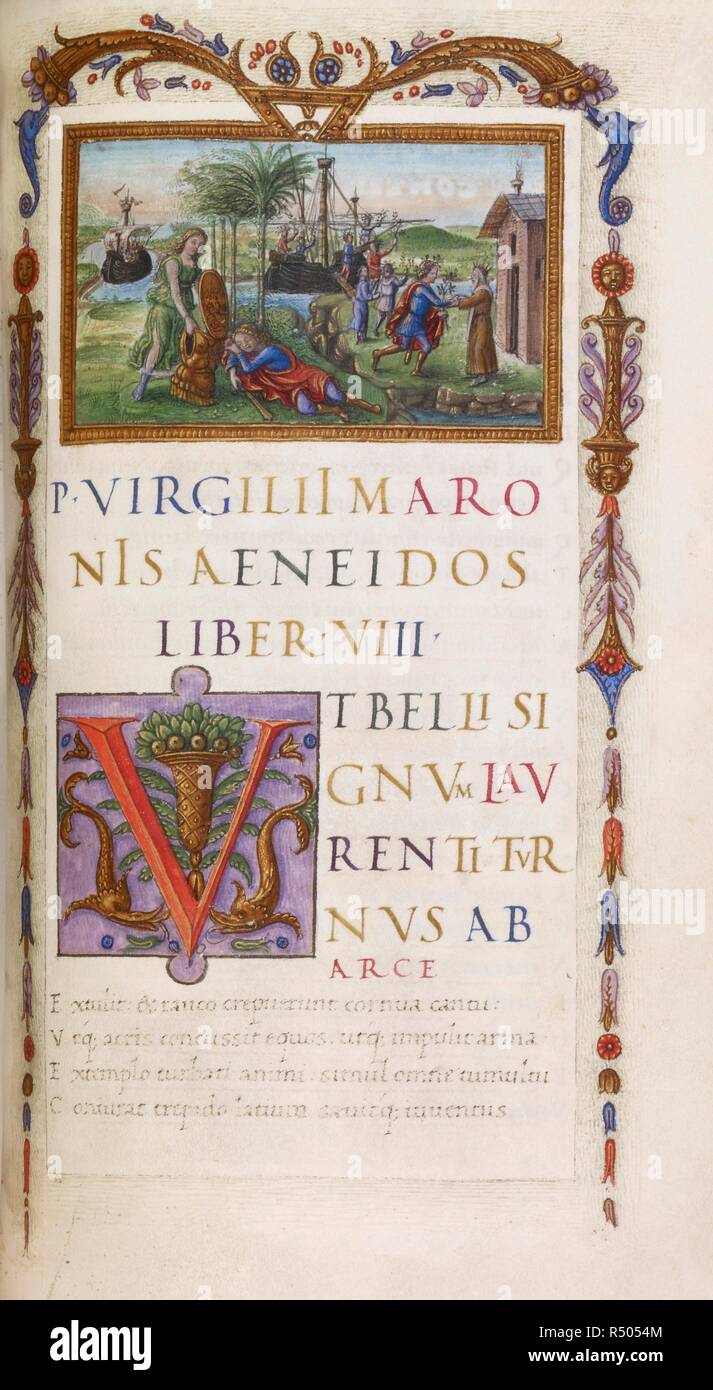 P·VIRGILII MARO
NIS AENEIDOS
LIBER·VIII·
VT BELLI SI
GNVM LAV
RENTI TVR
NVS AB
ARCE
Extulit: & rauco crepuerunt cornua cantu:
Vtq; acris concussit equos. utq; impulit arma
Extemplo turbati animi: simul omne tumultu
Coniurat trepido latium saeuitq; iuuentus
a
alamy
alamy stock photo
Image ID: R5054M
www.alamy.com